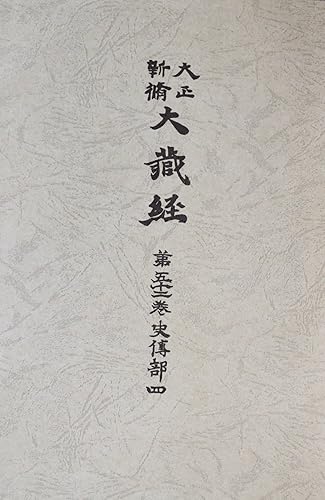 大正
新脩
大藏経
第五十二巻 史傳部四